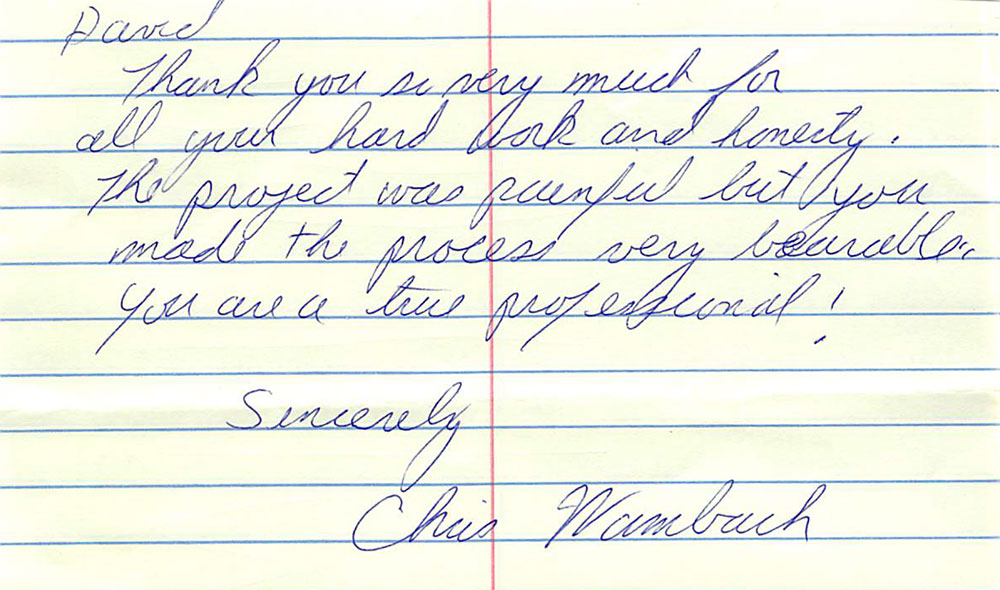 David
Thank you so very much for
all your hard work and honesty.
The project was painful but you
made the process very bearable.
You are a true professional!
Sincerely
Chris Wambach